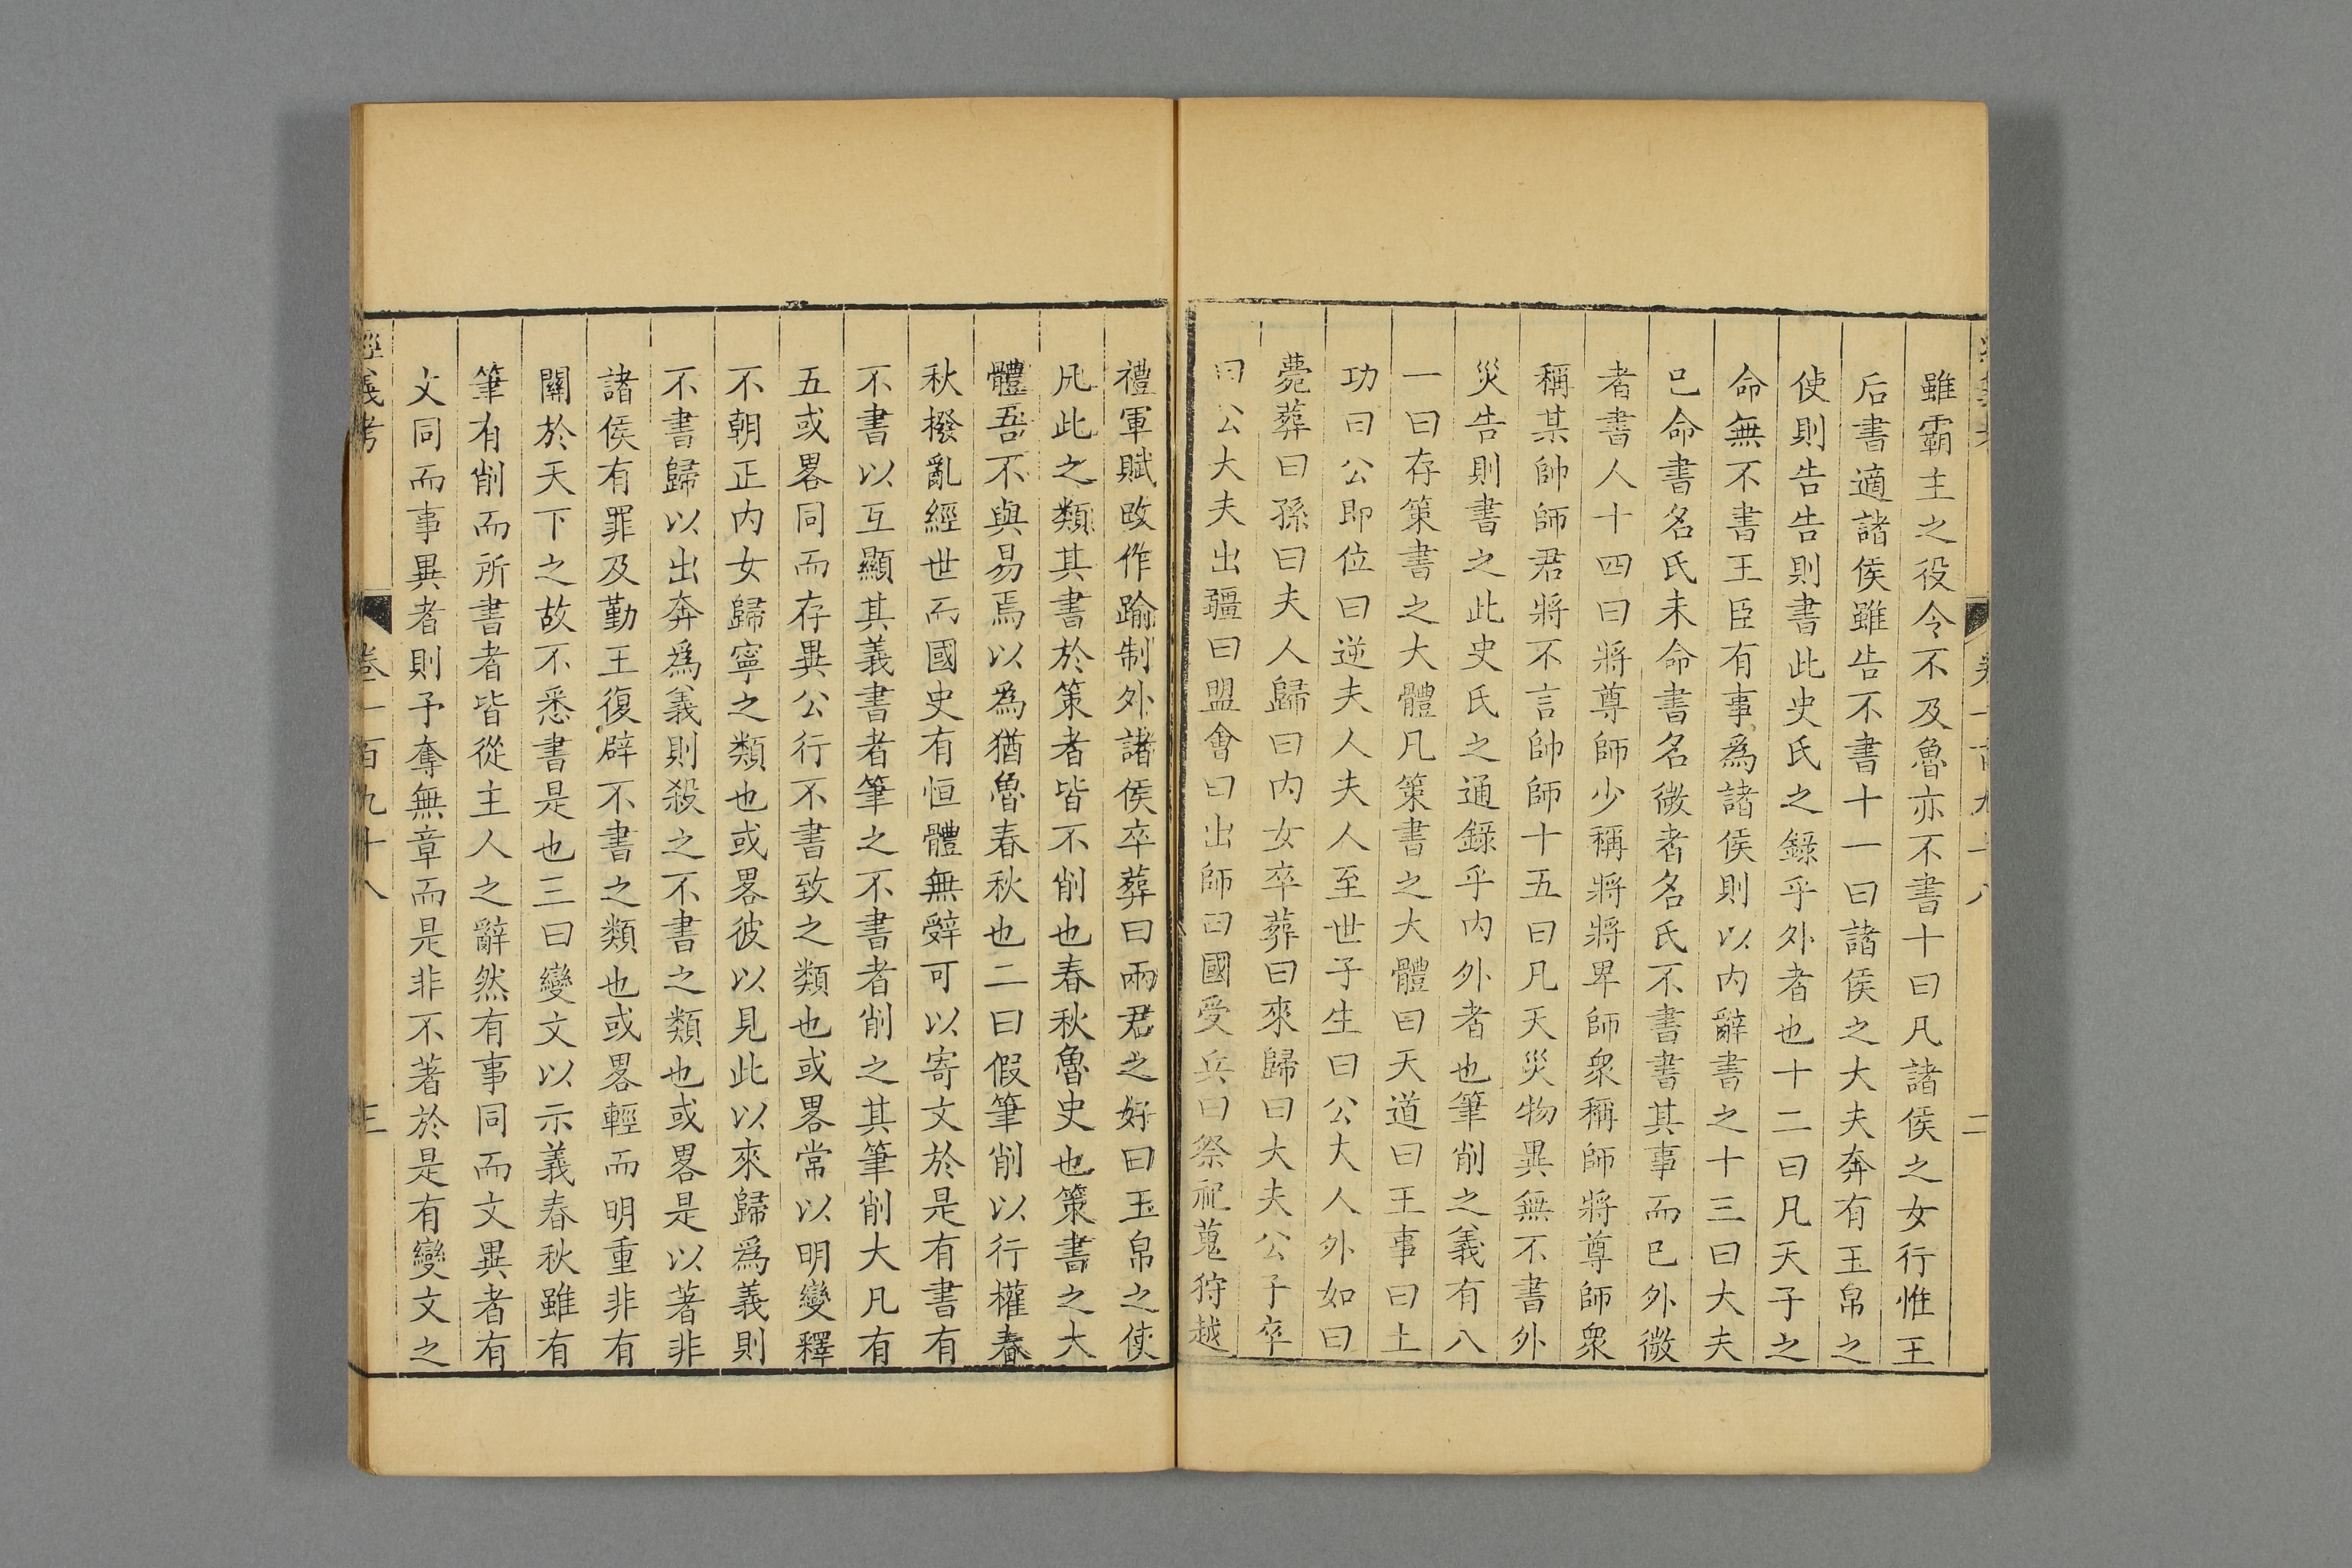 雖霸主之役令不及魯亦不書十曰凡諸侯之女行惟王
后書適諸侯雖告不書十一曰諸侯之大夫奔有玉帛之
使則告告則書此史氏之錄乎外者也十二曰凡天子之
命無不書王臣有事爲諸侯則以内辭書之十三曰大夫
已命書名氏未命書名微者名氏不書書其事而已外微
者書人十四曰將尊師少稱將將卑師衆稱師將尊師衆
稱某帥師君將不言帥師十五曰凡天災物異無不書外
災告則書之此史氏之通錄乎内外者也筆削之義有八
一曰存策書之大體凡策書之大體曰天道曰王事曰土
功曰公即位曰逆夫人夫人至世子生曰公大人外如曰
薨葬曰孫曰夫人歸曰内女卒葬曰來歸曰大夫公子卒
曰公大夫出疆曰盟會曰出師曰國受兵曰祭祀蒐狩越
禮軍賦改作踰制外諸侯卒葬曰兩君之好曰玉帛之使
凡此之類其書於策者皆不削也春秋魯史也策書之大
體吾不與易焉以爲猶魯春秋也二曰假筆削以行權春
秋撥亂經世而國史有恒體無辭可以寄文於是有書有
不書以互顯其義書者筆之不書者削之其筆削大凡有
五或畧同而存異公行不書致之類也或畧常以明變釋
不朝正内女歸寧之類也或畧彼以見此以來歸爲義則
不書歸以出奔爲義則殺之不書之類也或畧是以著非
諸侯有罪及勤王復辟不書之類也或畧輕而明重非有
關於天下之故不悉書是也三曰變文以示義春秋雖有
筆有削而所書者皆從主人之辭然有事同而文異者有
文同而事異者則予奪無章而是非不著於是有變文之
經義考 卷一百九十八 三